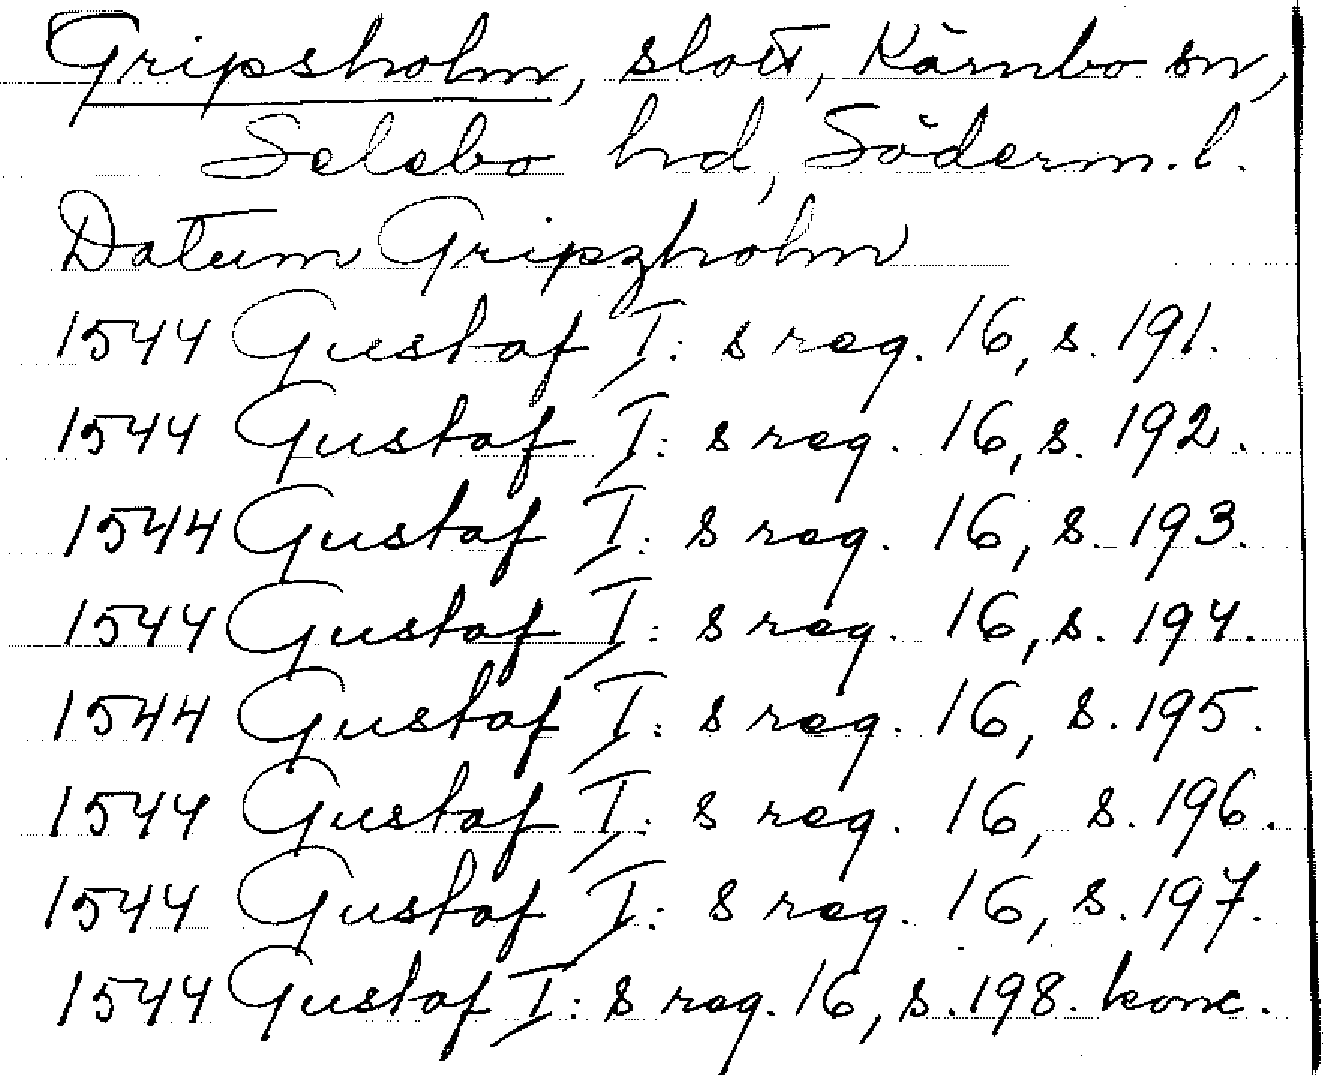 Gripsholm, slott, Kärnbo sn,
Selebo hd, Söderm. l.
Datum Gripzholm
1544 Gustaf I: s reg. 16, s. 191.
1544 Gustaf I: s reg. 16, s. 192.
1544 Gustaf I: s reg. 16, s. 193.
1544 Gustaf I: s reg. 16, s. 194.
1544 Gustaf I: s reg. 16, s. 195.
1544 Gustaf I: s reg. 16, s. 196.
1544 Gustaf I: s reg. 16, s. 197.
1544 Gustaf I: s reg. 16, s. 198. konc.